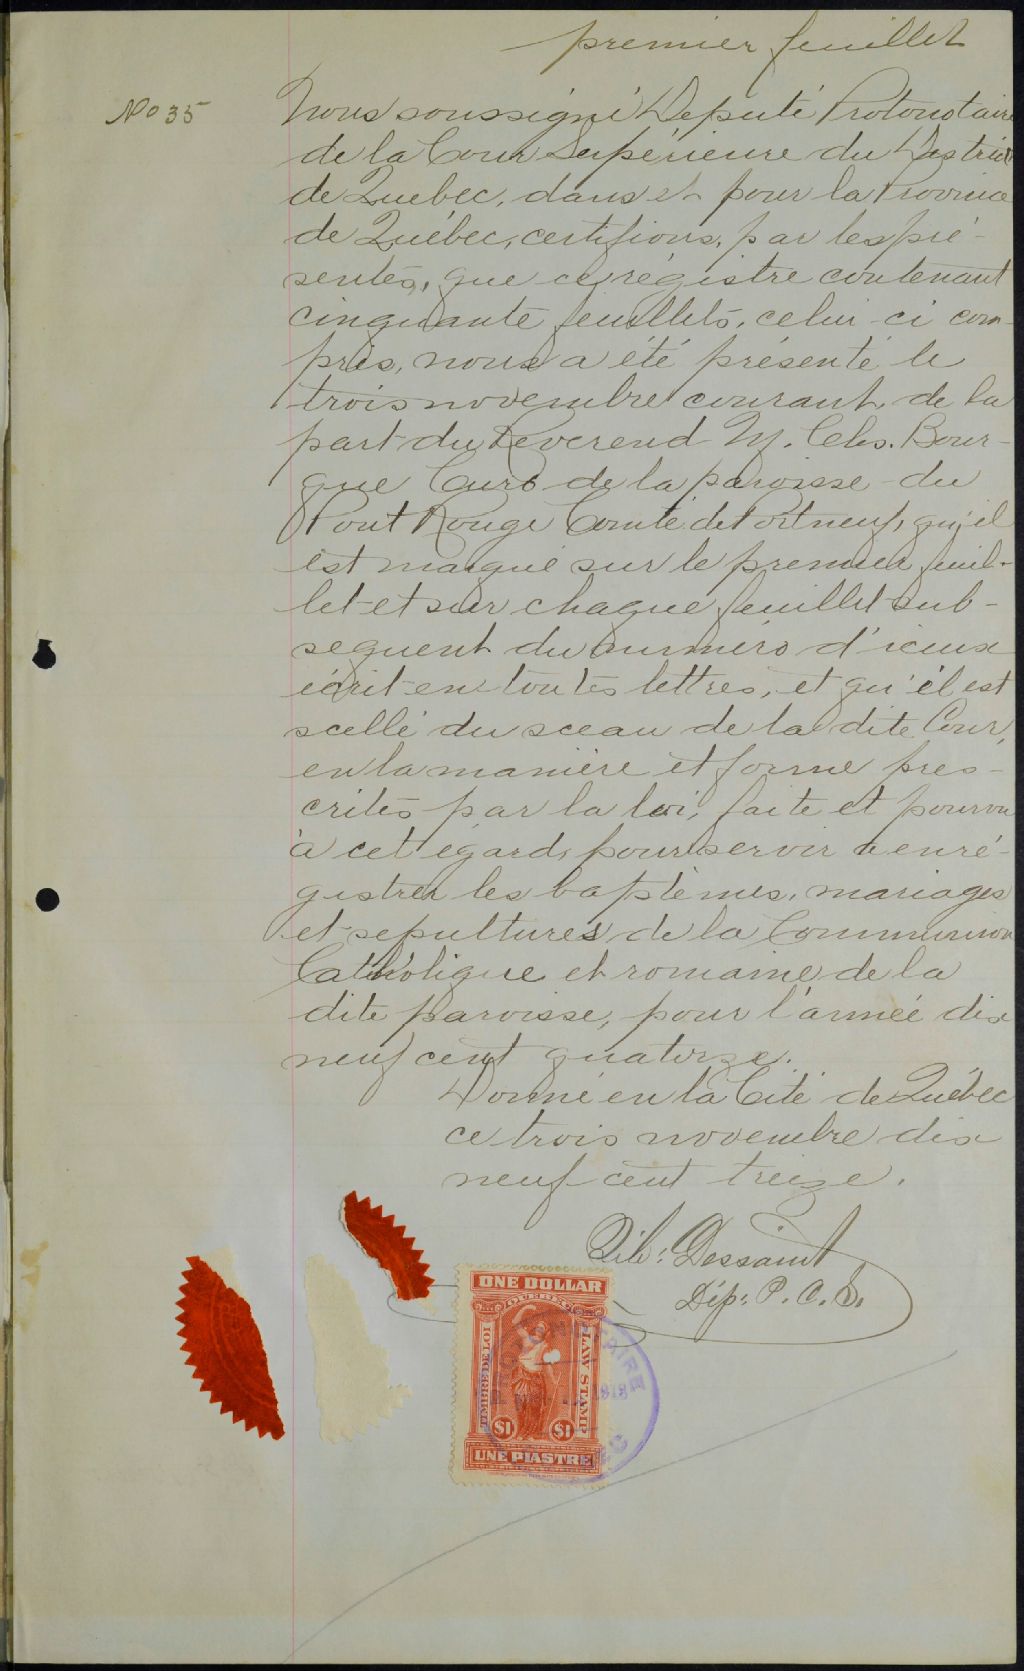 premier feuillet
No 35
Nous soussigné Deputé Protonotaire
de la Cour Supérieure du District
de Québec, dans et pour la Province
de Québec, certifions, par les pré-
sentes, que ce régistre contenant
cinquante feuillets, celui-ci com-
pris, nous a été présenté le
trois novembre courant, de la
part du Reverend M. Chs. Bour-
que Curé de la paroisse du
Pont Rouge Comté de Portneuf, qu'il
est marqué sur le premier feuil-
let et sur chaque feuillet sub-
sequent du numéro d'iceux
écrit en toutes lettres, et qu'il est
scellé du sceau de la dite Cour,
en la manière et forme pres-
crites par la loi, faite et pourvu
à cet égard, pour servir à enré-
gistrer les baptêmes, mariages
et sepultures de la Communion
Catholique et romaine de la
dite paroisse, pour l'année dix
neuf cent quatorze.
Donné en la Cité de Québec
ce trois novembre dix
neuf cent treize.
Dessaint
Dép: P. C. S.
ONE DOLLAR
QUEBEC
TIMBRE DE LOI
LAW STAMP
$1 $1
UNE PIASTRE